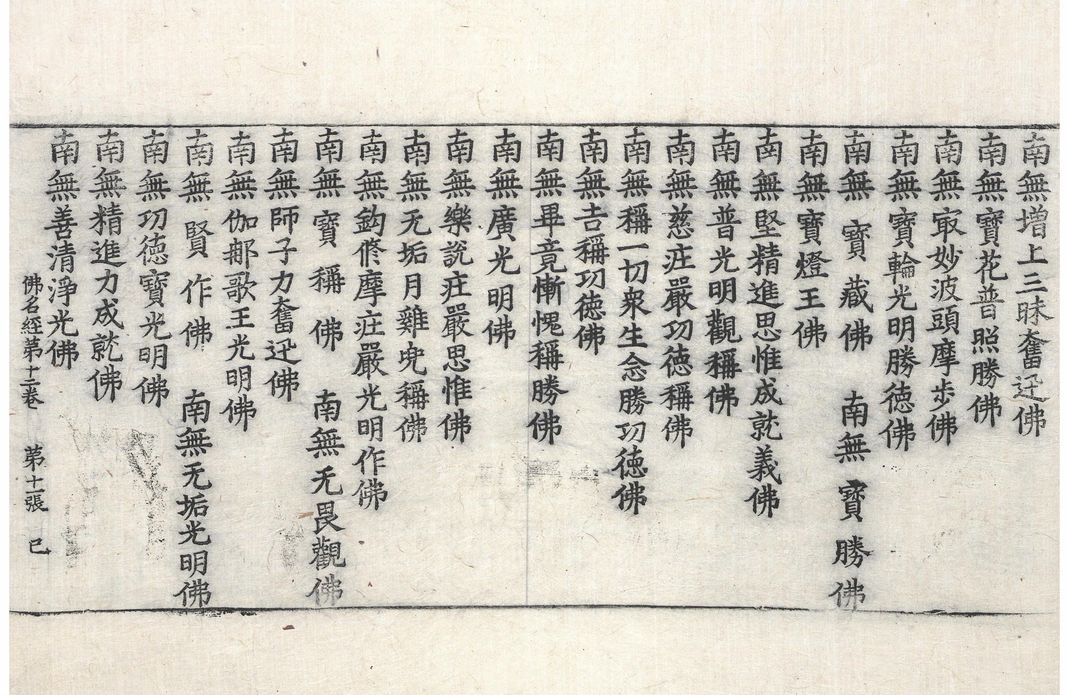 南無増上三昧奮迅佛
南無寶花普照勝佛
南無㝡妙波頭摩步佛
南無寶輪光明勝德佛
南無寶藏佛　南無寶勝佛
南無寶燈王佛
南無堅精進思惟成就義佛
南無普光明觀稱佛
南無慈莊嚴功德稱佛
南無稱一切衆生念勝功德佛
南無吉稱功德佛
南無畢竟慚愧稱勝佛
南無廣光明佛
南無樂說莊嚴思惟佛
南無无垢月雞兜稱佛
南無鈎修摩莊嚴光明作佛
南無寶稱佛　南無无畏觀佛
南無師子力奮迅佛
南無伽郍歌王光明佛
南無賢作佛　南無无垢光明佛
南無功德寶光明佛
南無精進力成就佛
南無善清淨光佛
佛名經第十二卷　第十一張　已